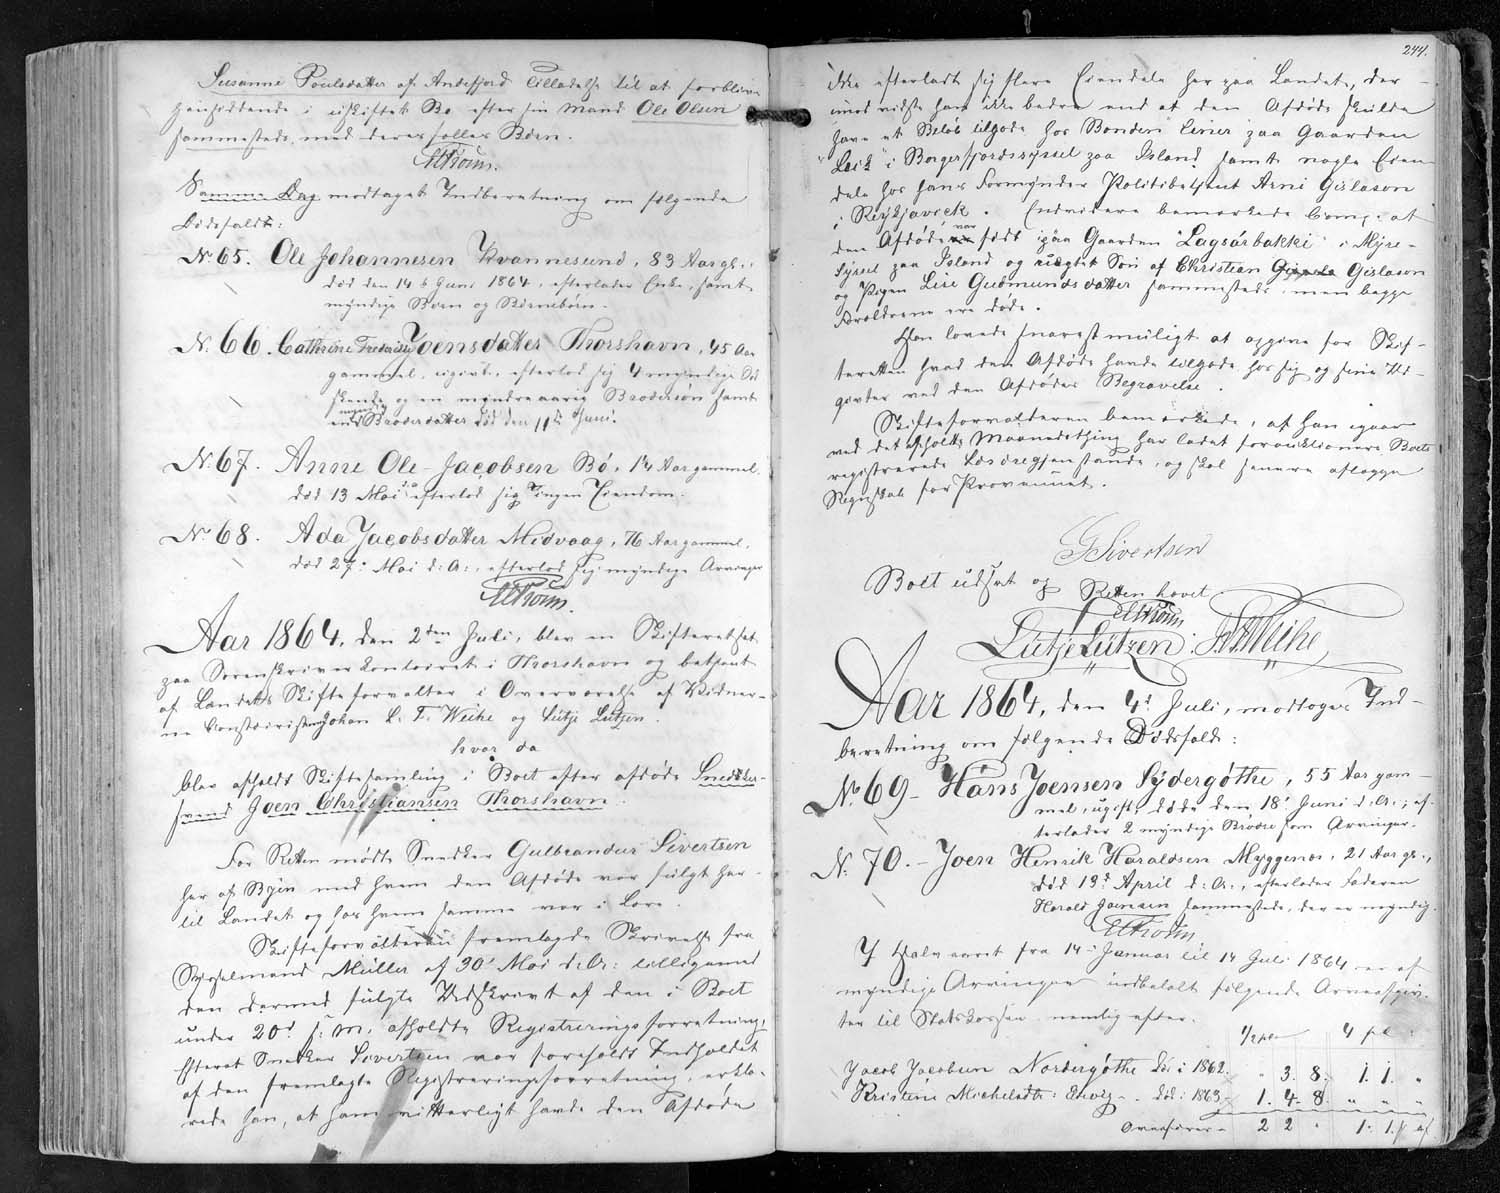 Susanne Poulsdatter af Andefjord Tilladelse til at forblive
hensiddende i uskiftet Bo efter sin Mand Ole Olsen
sammesteds med deres fælles Børn.
EHTroum.
Samme Dag modtaget Indberetning om følgende
Dødsfald:
No 65. Ole Johannesen Kvannesund, 83 Aar gl.,
død den 14 Juni 1864, efterlader Enke, samt
myndige Børn og Børnebørn.
No 66. Cathrine Frederikke Joensdatter Thorshavn, 45 Aar
gammel, ugivt, efterlod sig 4 myndige Sød
skende og en mindreaarig Brodersøn samt
Broderdatter død den 11te Juni.
No 67. Anne Ole-Jacobsen Bø, 14 Aar gammel.
død 13 Mai efterlod sig ingen Eiendom.
No 68. Ada Jacobsdatter Midvaag, 76 Aar gammel,
død 27 Mai d: A:, efterlod sig myndige Arvinger
EHTroum.
Aar 1864, den 2den Juli, blev en Skifteret sat
paa Sorenskrivercontoiret i Thorshavn og betjent
af Landets Skifteforvalter i Overværelse af Vidner-
ne Johan L. F. Weihe og Lütje Lützen.
hvor da
blev afholdt Skiftesamling i Boet efter afdøde Snedker-
svend Joen Christiansen Thorshavn.
For Retten mødte Snedker Gulbrandur Sivertsen
her af Byen med hvem den Afdøde var fulgt her-
til Landet og hos hvem samme var i Lære.
Skifteforvalteren fremlagde Skrivelse fra
Sysselmand Müller af 30' Mai d: Ar: tilligemed
den dermed fulgte Udskrivt af den i Boet
under 20d s: m. afholdte Registreringsforretning.
Efterat Snedker Sivertsen var foreholdt Indholdet
af den fremlagte Registreringsforretning, erklæ-
rede han, at ham vitterligt havde den Afdøde
244.
ikke efterladt sig flere Eiendele her paa Landet, der-
imod vidste han ikke bedre end at den Afdøde skulde
have et Beløb tilgode hos Bonden Einer paa Gaarden
"Leik" i Borgerfjordssyssel paa Island samt nogle Eien-
dele hos hans Formynder Politibetjent Arni Gislason
i Reykjaveek. Endvidere bemærkede Comp: at
den Afdøde var født paa Gaarden "Lagsárbakki" i Myre-
Syssel paa Island og uægte Søn af Christian Gislason
og Pigen Lise Gudmundsdatter sammesteds, men begge
Forældrene ere døde.
Han lovede snarest muligt at opgive for Skif-
teretten hvad den Afdøde havde tilgode hos sig og sine Ud-
givter ved den Afdødes Begravelse.
Skifteforvalteren bemærkede, at han igaar
ved det afholdte Maanedsthing har ladet forauctionere Boets
registrerede Løsøregjenstande, og skal senere aflægge
Regnskab for Provenuet.
G Sivertsen
Boet udsat og Retten hævet
EHTroum
Lütje Lützen. J. L. F. Weihe
Aar 1864, den 4d Juli, modtoges Ind-
beretning om følgende Dødsfald:
No 69 - Hans Joensen Sydergøthe, 55 Aar gam-
mel, ugift, døde den 18' Juni d: Ar:, ef-
terlader 2 myndige Brødre som Arvinger.
No 70. - Joen Henrik Haraldsen Myggenæs, 21 Aar gl.,
død 13d April d: Ar:, efterlader Faderen
Harald Joensen sammesteds, der er myndig.
EHTroum
I Halvaaret fra 14 Januar til 14 Juli 1864 er af
myndige Arvinger indbetalt følgende Arveafgiv-
ter til Statskassen nemlig efter.
1/2 pCt 4 pCt
Jacob Jacobsen Nordergøthe død i 1862. " 3. 8. 1. 1. "
Kristine Michelsdtr: Ehvig - død: 1863 - 1. 4. 8. " " "
Overføres - 2 2 " 1. 1. "